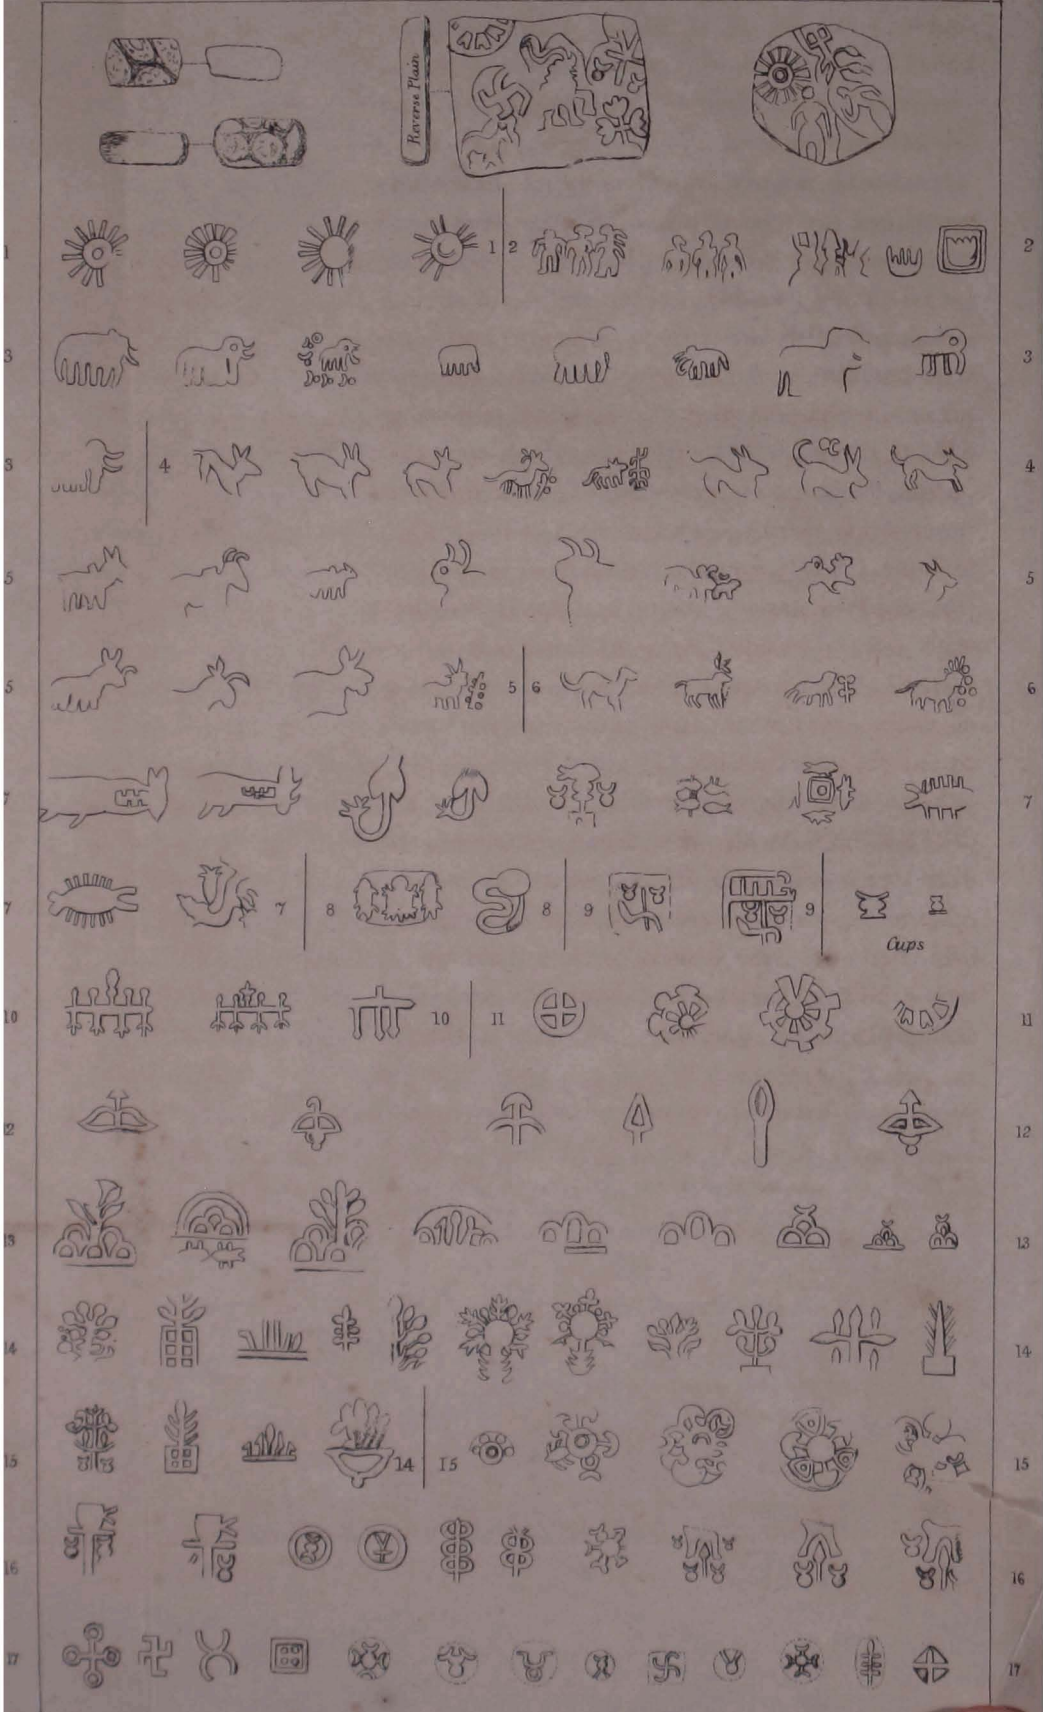 Reverse Plain
1 1 2 2
3 3
3 4 4
5 5
5 5 6 6
7 7
7 7 8 8 9 9
Cups
10 10 11 11
12 12
13 13
14 14
15 14 15 15
16 16
17 17